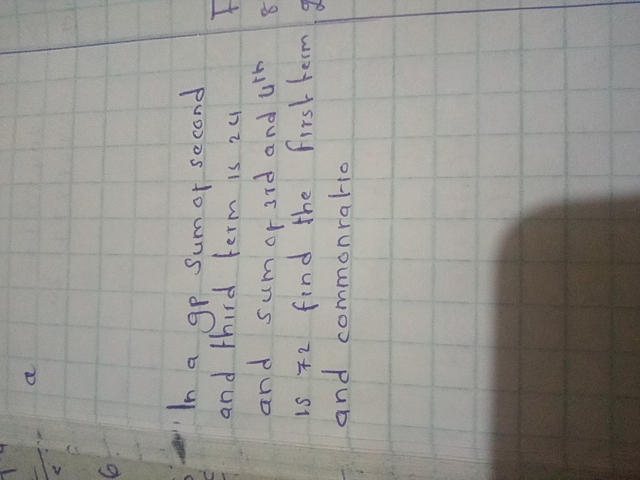 In a gp sum of second
and third term is 24
and sum of 3rd and 4th
is 72 find the first term
and common ratio
a
6